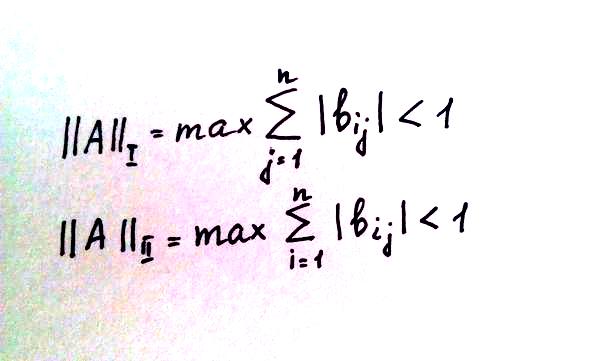 ||A||_I = max ∑_{j=1}^{n} |b_{ij}| < 1
||A||_{II} = max ∑_{i=1}^{n} |b_{ij}| < 1